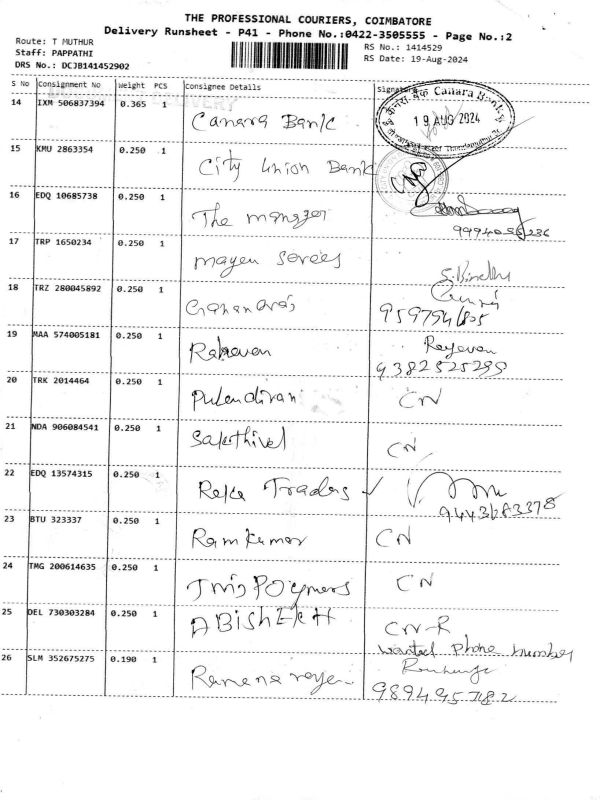 THE PROFESSIONAL COURIERS, COIMBATORE
Delivery Runsheet - P41 - Phone No.:0422-3505555 - Page No.:2
Route: T MUTHUR
Staff: PAPPATHI
DRS No.: DCJB141452902
RS No.: 1414529
RS Date: 19-Aug-2024
S No Consignment No Weight PCS Consignee Details
14 IXM 506837394 0.365 1 Canara Bank
Canara Bank
19 AUG 2024
15 KMU 2863354 0.250 1 City Union Bank
16 EDQ 10685738 0.250 1 The manager
17 TRP 1650234 0.250 1 mayen Sarees
18 TRZ 280045892 0.250 1
19 MAA 574005181 0.250 1
9382525299
20 TRK 2014464 0.250 1 Pulendiran CN
21 NDA 906084541 0.250 1 Sakthivel CN
22 EDQ 13574315 0.250 1 Reka Traders
9443283378
23 BTU 323337 0.250 1 Ramkumar CN
24 TMG 200614635 0.250 1 CN
25 DEL 730303284 0.250 1 ABISHEKH CN-R
wanted phone number
26 SLM 352675275 0.190 1
9894957182